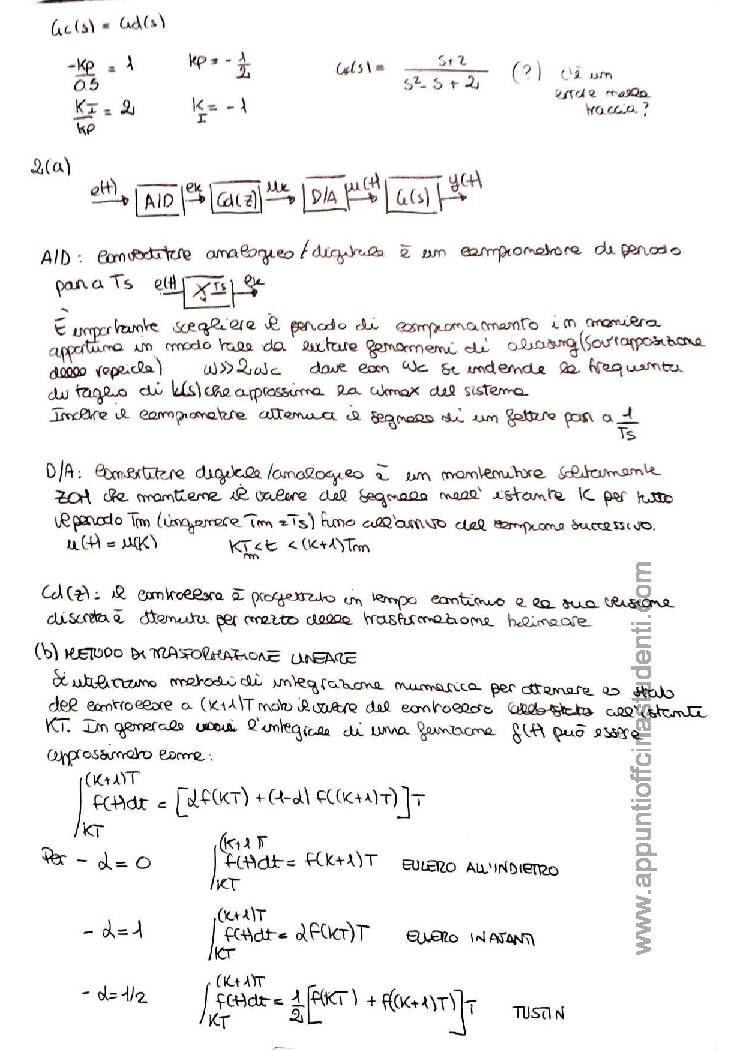 Gc(s) = Gd(s)
-Kp/0.5 = 1    Kp = -1/2    G(s) = s+2 / s²-s+2 (?) C'è un
KI/Kp = 2    KI = -1    traccia?
2(a)
e(t) A/D ek Cd(z) uk D/A u(t) G(s) y(t)
A/D: convertitore analogico/digitale è un campionatore di periodo
pari a Ts e(t) Ts ek
È importante scegliere il periodo di campionamento in maniera
opportuna in modo tale da evitare fenomeni di aliasing (sovrapposizione
delle repliche) ω>>2ωc dove con ωc si intende la frequenza
di taglio di che approssima la ωmax del sistema
Inoltre il campionatore attenua il segnale di un fattore pari a 1/Ts
D/A: convertitore digitale/analogico è un mantenitore solitamente
ZOH che mantiene il valore del segnale nell'istante K per tutto
il periodo Tm (in genere Tm = Ts) fino all'arrivo del campione successivo.
u(t) = u(K)    KTm<t<(K+1)Tm
Cd(z): il controllore è progettato in tempo continuo e la sua versione
discreta è ottenuta per mezzo della trasformazione bilineare
(b) METODO DI TRASFORMAZIONE LINEARE
Si utilizzano metodi di integrazione numerica per ottenere lo stato
del controllore a (K+1)T noto il valore del controllore all'istante
KT. In generale l'integrale di una funzione f(t) può essere
approssimato come:
∫KT (K+1)T f(t)dt = [αf(KT) + (1-α) f((K+1)T)]T
Per - α=0    ∫KT (K+1)T f(t)dt = f(K+1)T    EULERO ALL'INDIETRO
- α=1    ∫KT (K+1)T f(t)dt = αf(KT)T    EULERO IN AVANTI
- α=1/2    ∫KT (K+1)T f(t)dt = 1/2 [f(KT) + f((K+1)T)]T    TUSTIN
www.appuntioffcinastudenti.com